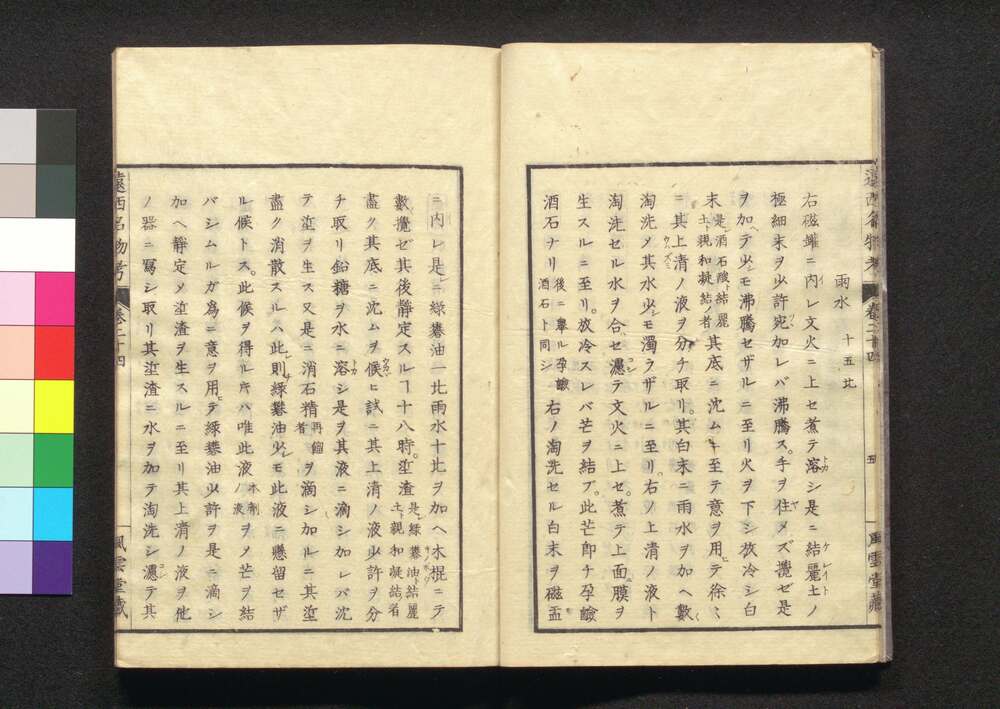 雨水 十五比
右磁罐ニ内レ文火ニ上セ煮テ溶シ是ニ結麗土ノ
極細末ヲ少許宛加レバ沸騰ス。手ヲ住メズ攪ゼ是
ヲ加ヘテ少シモ沸騰セザルニ至リ火ヲ下シ放冷シ白
末 是レ酒石酸ト結麗土ト親和凝結ノ者 其底ニ沈ムキ至テ意ヲ用ヒテ徐々
ニ其上清ノ液ヲ分チ取リ。其白末ニ雨水ヲ加ヘ數
淘洗メ其水少シモ濁ラザルニ至リ。右ノ上清ノ液ト
淘洗セル水ヲ合セ濃テ文火ニ上セ。煮テ上面膜ヲ
生スルニ至リ。放冷スレバ芒ヲ結ブ。此芒即チ孕鹼
酒石ナリ 後ニ擧ル孕鹼酒石ト同シ 右ノ淘洗セル白末ヲ磁盂
五
風雲堂藏
ニ内レ是ニ緑礬油一比雨水十比ヲ加ヘ木棍ニテ
數攪ゼ其後静定スルヿ十八時。滓渣 是レ緑礬油ト結麗土ト親和凝結者
盡ク其底ニ沈ムヲ候ヒ試ニ其上清ノ液少許ヲ分
チ取リ鉛糖ヲ水ニ溶シ是ヲ其液ニ滴シ加レバ沈
テ滓ヲ生ス又是ニ消石精 再餾者 ヲ滴シ加ルニ其滓
盡ク消散スルハ此レ則緑礬油少シモ此液ニ懸留セザ
ル候トス。此候ヲ得ルキハ唯此液 本劑ノ液 ヲメ芒ヲ結
バシムルガ爲ニ意ヲ用ヒテ緑礬油少許ヲ是ニ滴シ
加ヘ静定メ滓渣ヲ生スルニ至リ其上清ノ液ヲ他
ノ器ニ寫シ取リ其滓渣ニ水ヲ加テ淘洗シ濃テ其
遠西名物考
卷二十四
風雲堂藏